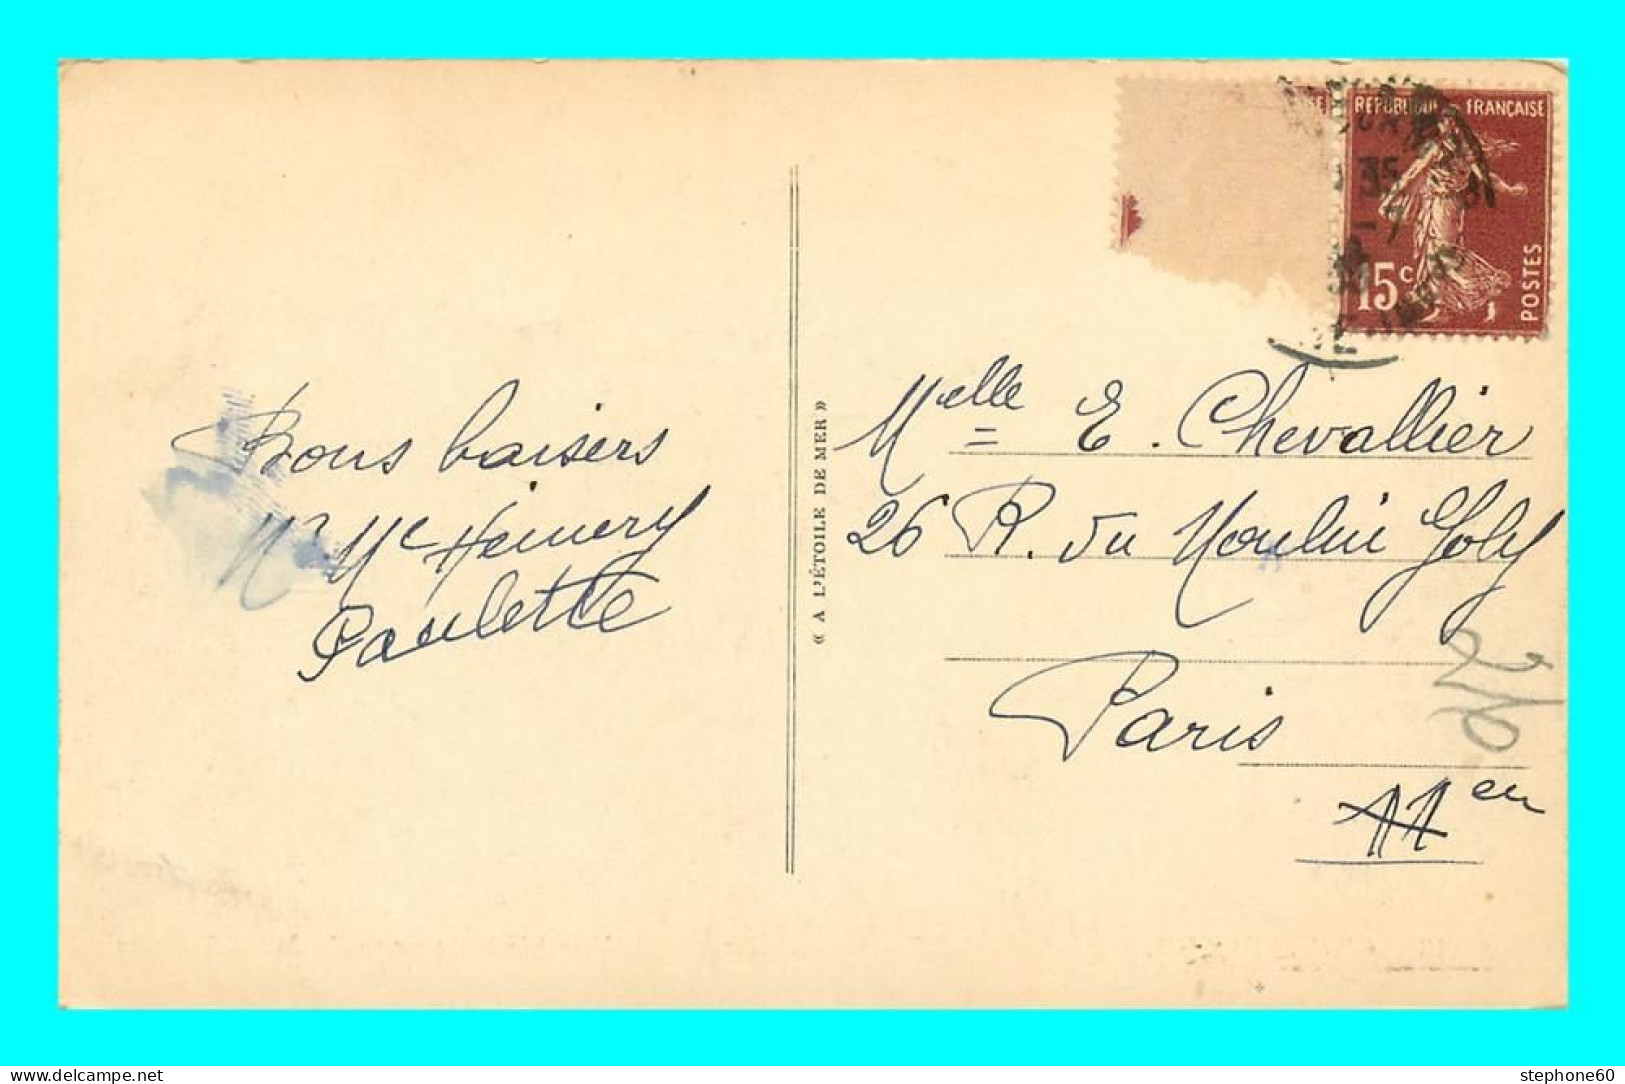 Bons baisers
Mr Me Heimery
Paulette
« A L'ÉTOILE DE MER »
RÉPUBLIQUE FRANÇAISE
15c
POSTES
Melle E. Chevallier
26 R. du Moulin Joly
Paris
11 en
stephone60